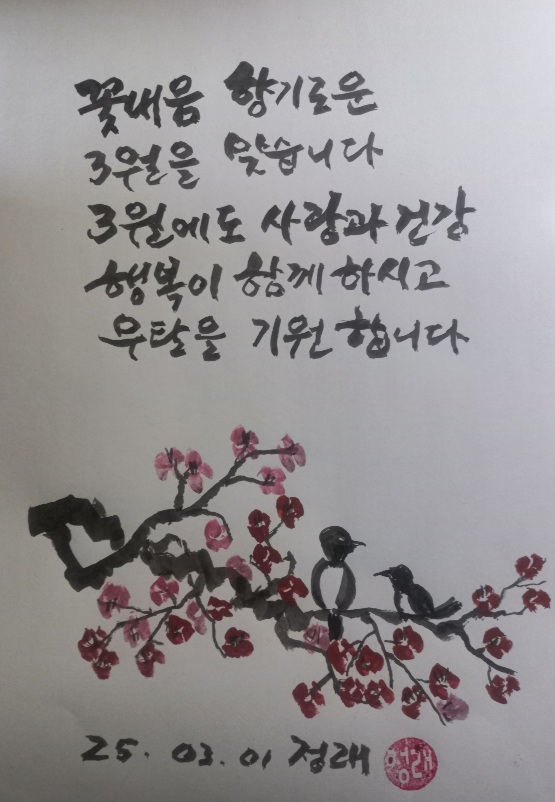 꽃내음 향기로운
3월을 맞습니다
3월에도 사랑과 건강
행복이 함께 하시고
무탈을 기원 합니다
25. 03. 01 정래
정래